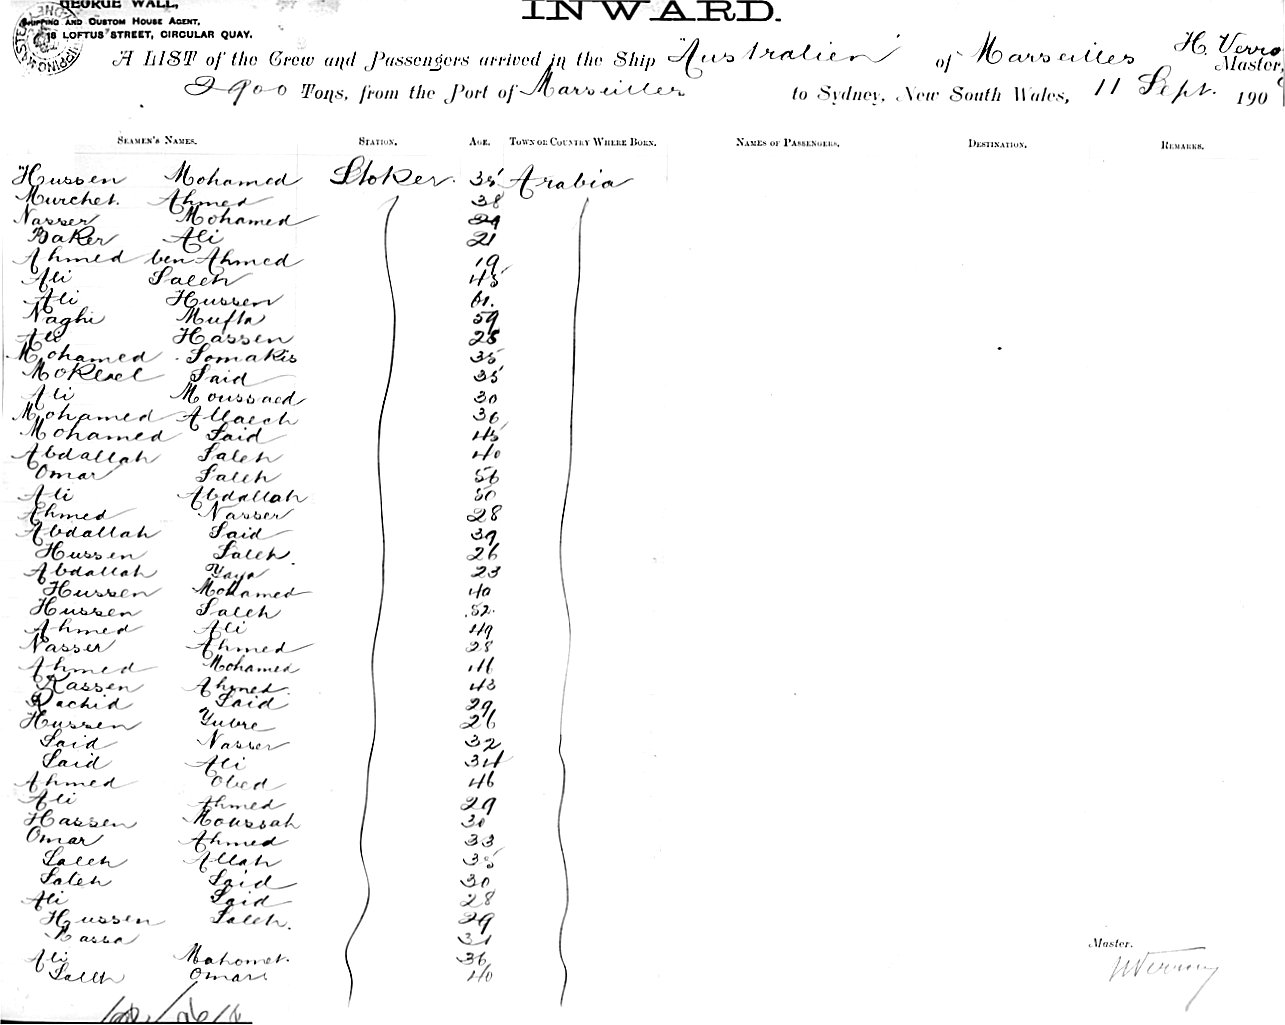 GEORGE WALL,
SHIPPING AND CUSTOM HOUSE AGENT,
18 LOFTUS STREET, CIRCULAR QUAY.
INWARD.
A LIST of the Crew and Passengers arrived in the Ship "Australien" of Marseilles H. Verro Master,
2900 Tons, from the Port of Marseilles to Sydney, New South Wales, 11 Sept. 190
SEAMEN'S NAMES. STATION. AGE. TOWN OR COUNTRY WHERE BORN. NAMES OF PASSENGERS. DESTINATION. REMARKS.
Hussen Mohamed Stoker. 35 Arabia
Murchet. Ahmed 38
Nasser Mohamed 29
Baker Ali 21
Ahmed ben Ahmed 19
Ali Saleh 45
Ali Hussen
Naghi Mufta 59
Ali Hassen 28
Mohamed Somakis 35
Said 35
Ali Moussaed 30
Mohamed Allaech 36
Mohamed Said 45
Abdallah Saleh 40
Omar Saleh 56
Ali Abdallah 50
Ahmed Nasser 28
Abdallah Said 39
Hussen Saleh. 26
Abdallah Yaya 23
Hussen Mohamed 40
Hussen Saleh 52.
Ahmed Ali 49
Nasser Ahmed 28
Ahmed Mohamed
Kassen Ahmed. 43
Rachid Said 29
Hussen Yubre 26
Said Nasser 32
Said Ali 34
Ahmed Obed 46
Ali Ahmed 29
Hassen Moussah 30
Omar Ahmed 33
Saleh Allah 35
Saleh Said 30
Ali Said 28
Hussen Saleh. 29
Kassa 31
Ali Mahomet. 36
Saleh Omar 40
Master.